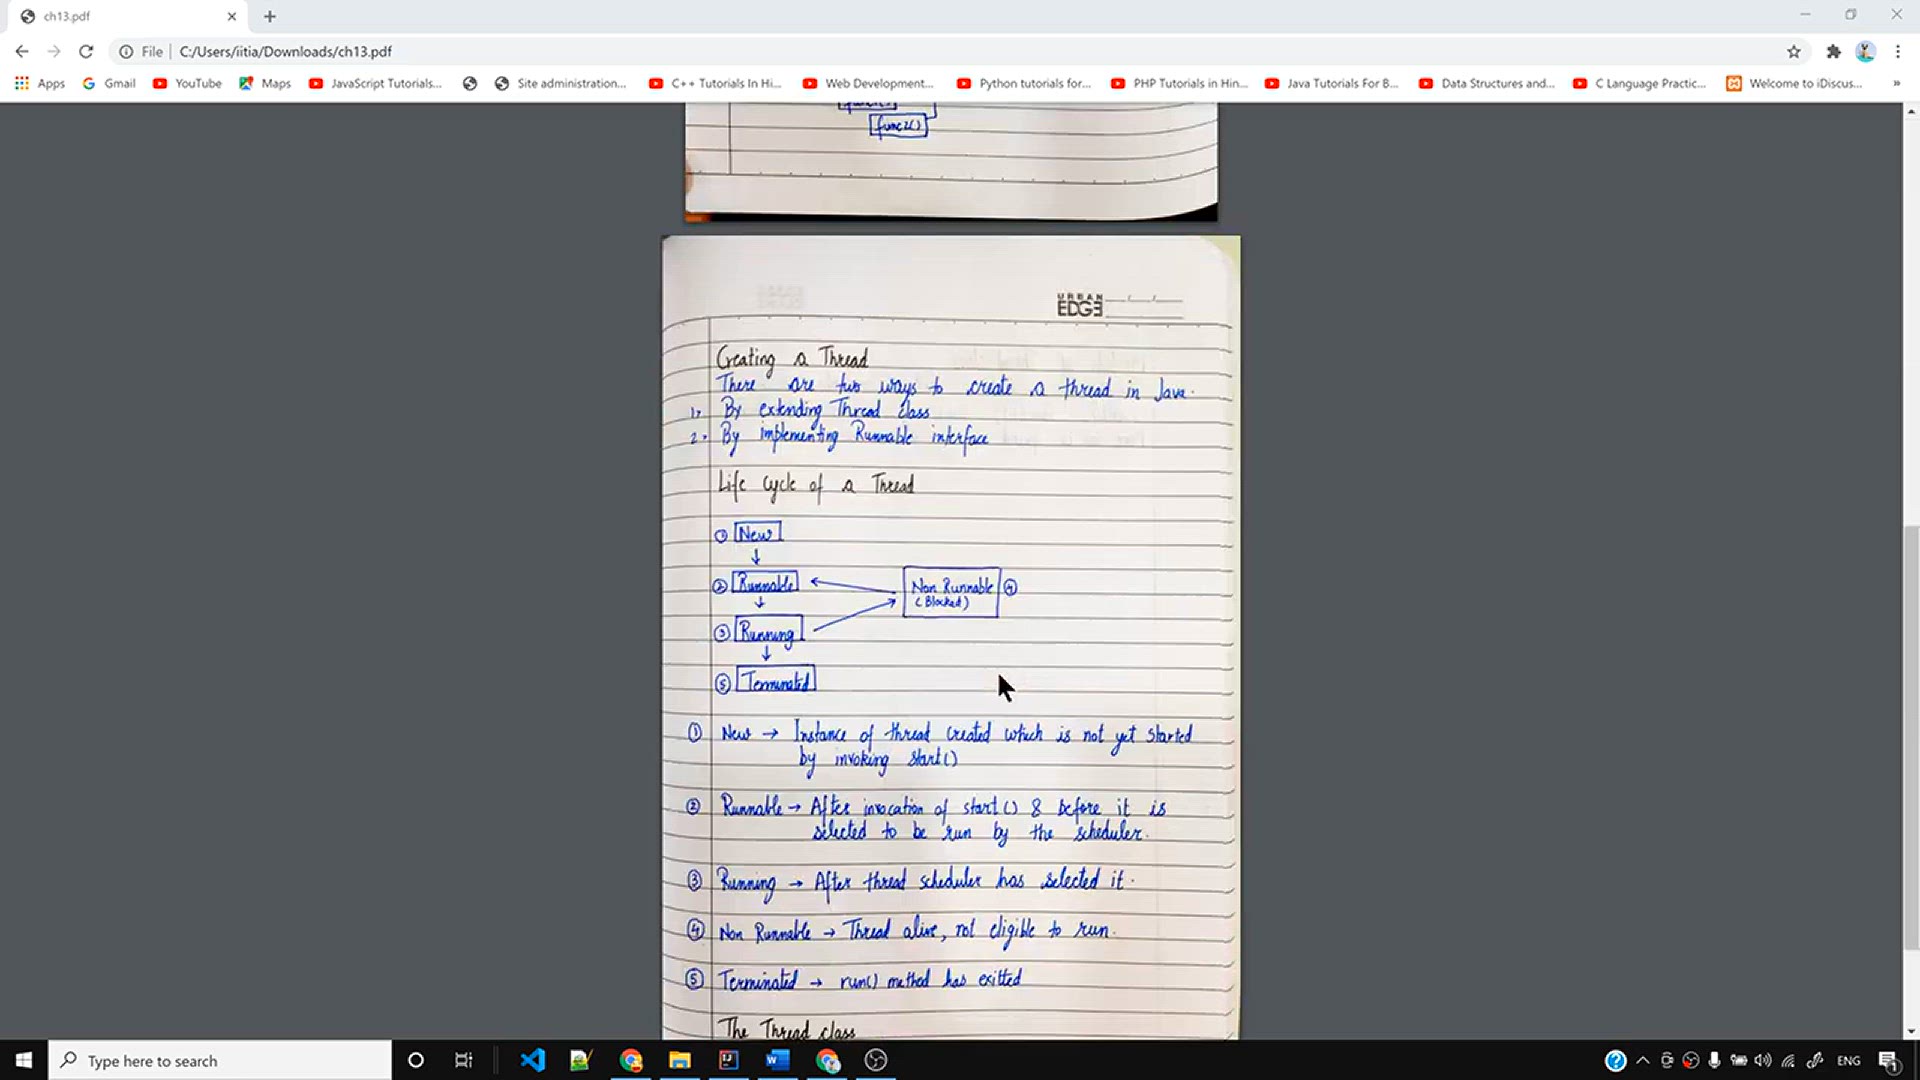 ch13.pdf
File | C:/Users/iitia/Downloads/ch13.pdf
Apps Gmail YouTube Maps JavaScript Tutorials... Site administration... C++ Tutorials In Hi... Web Development... Python tutorials for... PHP Tutorials in Hin... Java Tutorials For B... Data Structures and... C Language Practic... Welcome to iDiscus... »
func2()
URBAN
EDGE
Creating a Thread
There are two ways to create a thread in Java.
1. By extending Thread class
2. By implementing Runnable interface
Life cycle of a Thread
① New
② Runnable
Non Runnable ④
(Blocked)
③ Running
⑤ Terminated
① New → Instance of thread created which is not yet started
by invoking start()
② Runnable → After invocation of start() & before it is
selected to be run by the scheduler.
③ Running → After thread scheduler has selected it.
④ Non Runnable → Thread alive, not eligible to run.
⑤ Terminated → run() method has exitted
The Thread class
Type here to search
ENG